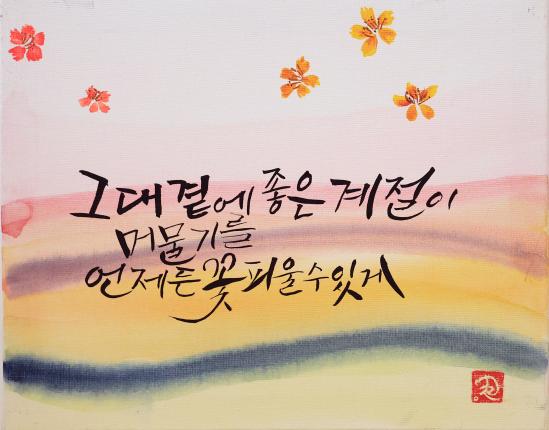 그대 곁에 좋은 계절이
머물기를
언제든 꽃 피울 수 있게